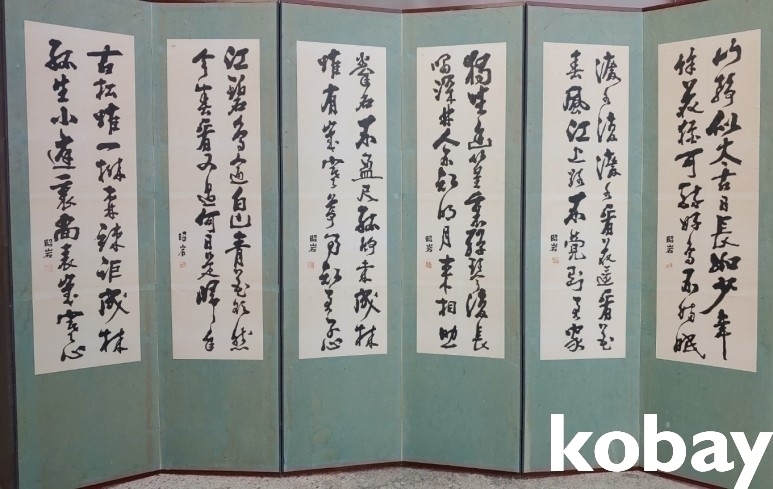 山靜似太古日長如少年
餘花猶可醉好鳥不妨眠
昭岩
渡水復渡水看花還看花
春風江上路不覺到君家
昭岩
獨坐幽篁裏彈琴復長
嘯深林人不知明月來相照
昭岩
拳石不盈尺孤竹未成林
惟有歲寒節乃知君子心
昭岩
江碧鳥逾白山青花欲然
今春看又過何日是歸年
昭岩
古松雖一株森疎詎成林
孤生小庭裏尚表歲寒心
昭岩
kobay